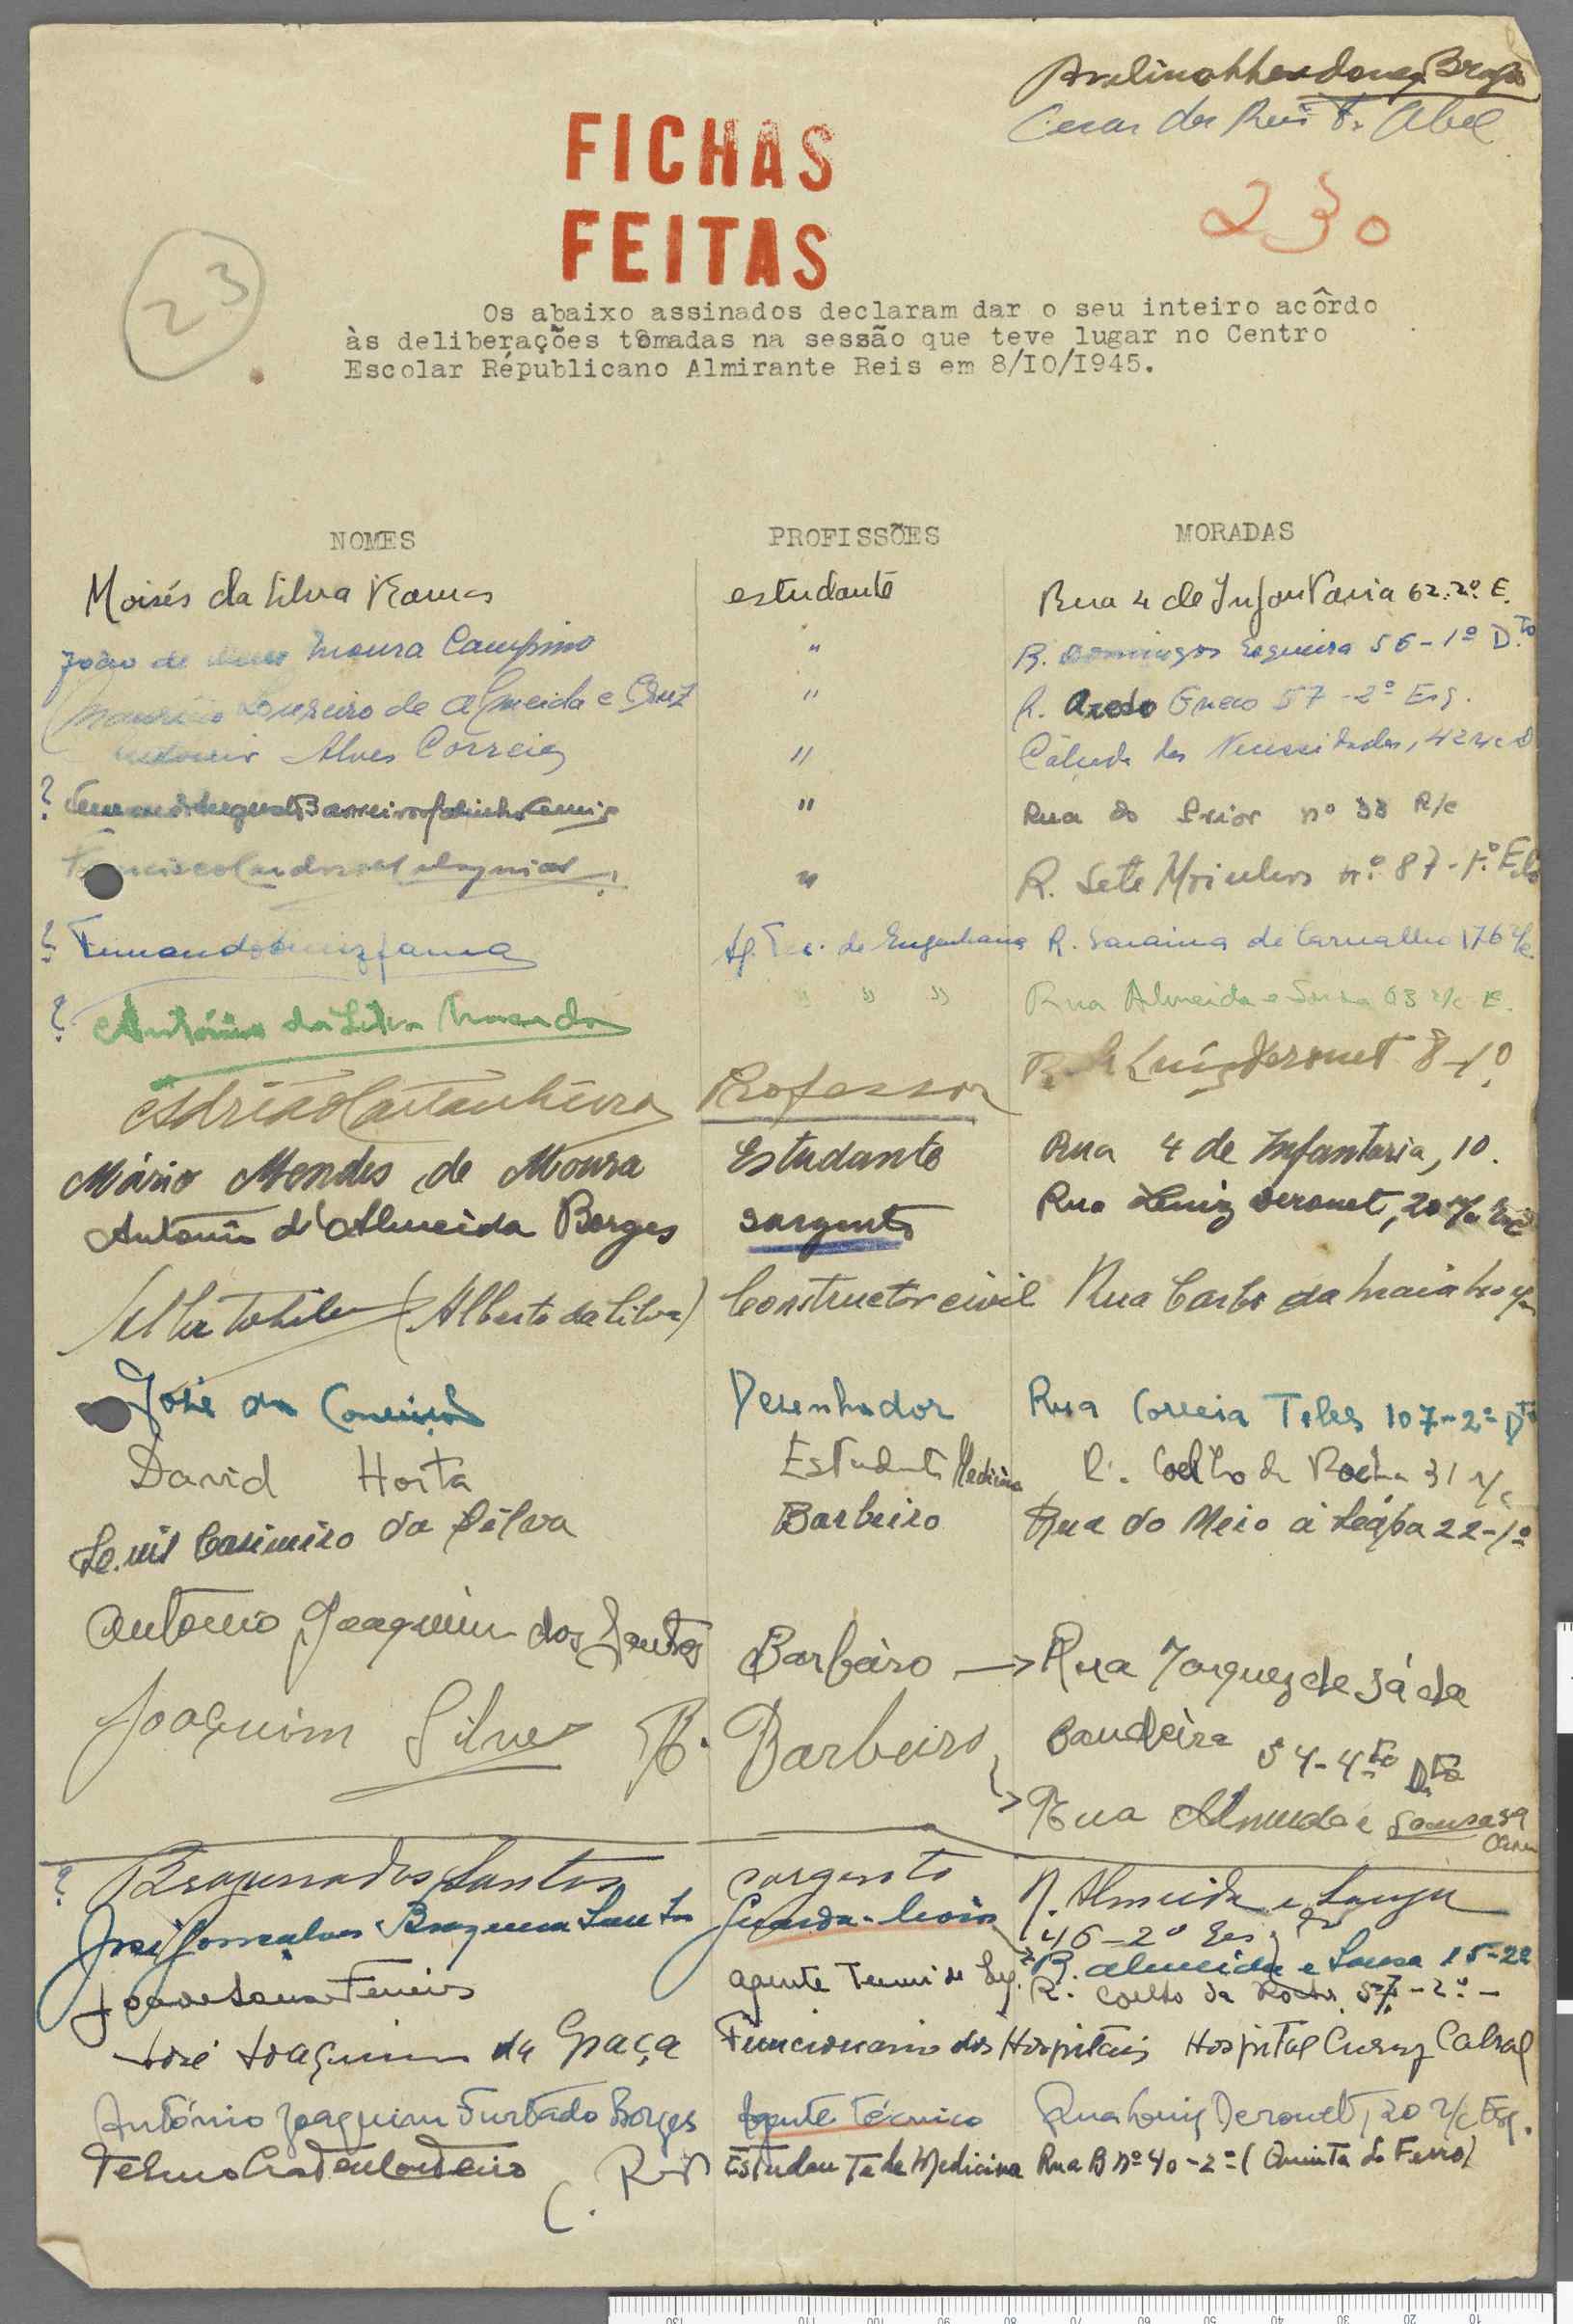 FICHAS
FEITAS
230
23
Os abaixo assinados declaram dar o seu inteiro acôrdo
às deliberações tomadas na sessão que teve lugar no Centro
Escolar Républicano Almirante Reis em 8/IO/I945.
NOMES PROFISSÕES MORADAS
Moisés da Silva Ramos estudante Rua 4 de Infantaria 62.2º E.
João de Moura Campino " R. Domingos Sequeira 56-1º Dto
Loureiro de Almeida e Cruz " R. Azedo Gneco 57-2º Esq.
Alves Correia " Calçada das Necessidades, 42 r/c D
? " Rua do Prior nº 38 R/c
" R. Sete Moinhos nº 87-1º
? Fernando R. Saraiva de Carvalho 176 r/c
? António da Silva " " " Rua Almeida e Sousa 63 r/c E.
Adrião Castanheira Professor R. Luiz Derouet 8-1º
Mário Mendes de Moura Estudante Rua 4 de Infantaria, 10.
Antonio d'Almeida Borges sargento Rua Luiz Derouet, 20 r/c Esq
(Alberto da Silva) Constructor civil Rua Carlos da Maia
José da Conceição Desenhador Rua Correia Teles 107-2º Dto
David Horta Estudante Medicina R. Coelho da Rocha 31 r/c
Luis Casimiro da Silva Barbeiro Rua do Meio á Lapa 22-1º
Antonio Joaquim dos Santos Barbeiro Rua Marquez de Sá da
Bandeira 54-4to Dto
Joaquim Silva Barbeiro Rua Almeida e Sousa
? dos Santos sargento R. Almeida e Souza
46-2º Esq
José Gonçalves Santos Guarda-livros R. Almeida e Sousa
João de Sousa Ferreira R. Coelho da Rocha, 57-2º-
José Joaquim da Graça Funcionario dos Hospitais Hospital Curry Cabral
António Joaquim Furtado Borges Agente técnico Rua Luiz Derouet, 20 r/c Esq.
Estudante de Medicina Rua B nº 40-2º (Quinta do Ferro)